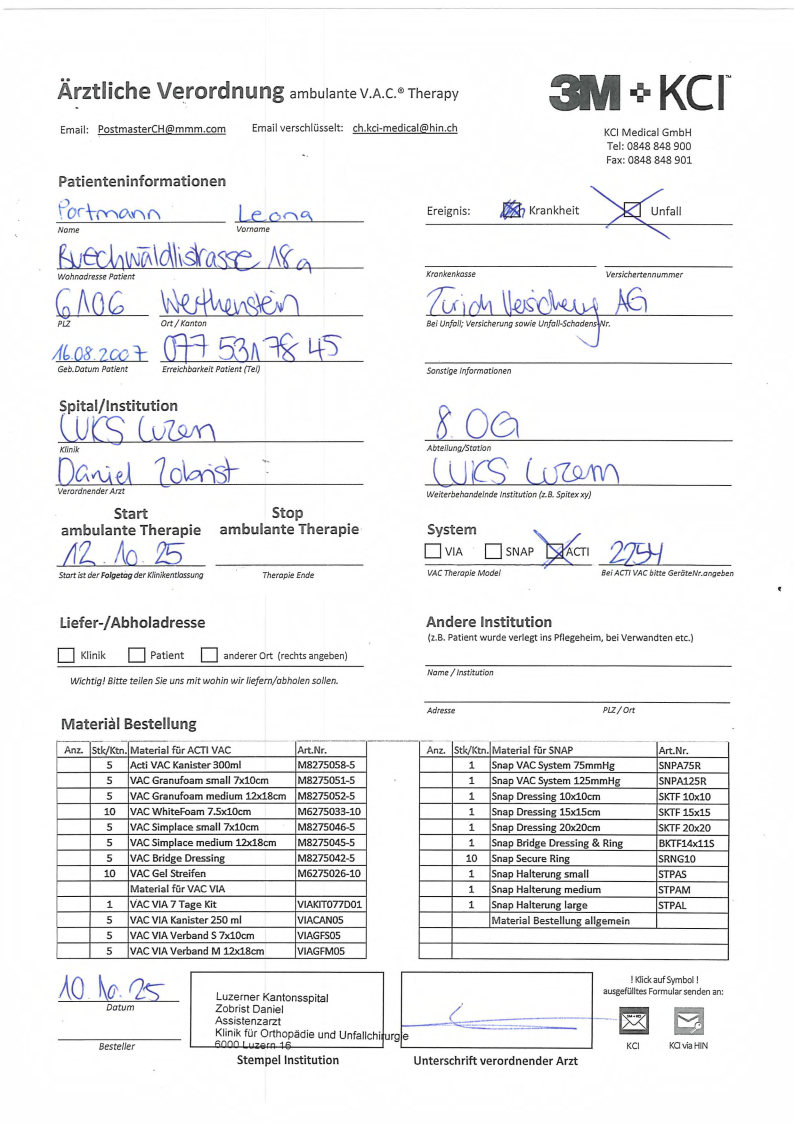 Ärztliche Verordnung ambulante V.A.C.® Therapy
3M + KCI™
Email: PostmasterCH@mmm.com Email verschlüsselt: ch.kci-medical@hin.ch
KCI Medical GmbH
Tel: 0848 848 900
Fax: 0848 848 901
Patienteninformationen
Portmann Leona
Name Vorname
Ereignis: Krankheit Unfall
Buechwäldlistrasse 18a
Wohnadresse Patient
Krankenkasse Versichertennummer
6106 Werthenstein
PLZ Ort / Kanton
Zürich AG
Bei Unfall; Versicherung sowie Unfall-Schadens-Nr.
16.08.2007 077 531 78 45
Geb.Datum Patient Erreichbarkeit Patient (Tel)
Sonstige Informationen
Spital/Institution
LUKS Luzern
Klinik
8. OG
Abteilung/Station
Daniel Zobrist
Verordnender Arzt
LUKS Luzern
Weiterbehandelnde Institution (z.B. Spitex xy)
Start ambulante Therapie
Stop ambulante Therapie
12.10.25
Start ist der Folgetag der Klinikentlassung Therapie Ende
System
VIA SNAP ACTI 2254
VAC Therapie Model Bei ACTI VAC bitte GeräteNr.angeben
Liefer-/Abholadresse
Klinik Patient anderer Ort (rechts angeben)
Wichtig! Bitte teilen Sie uns mit wohin wir liefern/abholen sollen.
Andere Institution
(z.B. Patient wurde verlegt ins Pflegeheim, bei Verwandten etc.)
Name / Institution
Adresse PLZ / Ort
Material Bestellung
Anz. Stk/Ktn. Material für ACTI VAC Art.Nr.
5 Acti VAC Kanister 300ml M8275058-5
5 VAC Granufoam small 7x10cm M8275051-5
5 VAC Granufoam medium 12x18cm M8275052-5
10 VAC WhiteFoam 7.5x10cm M6275033-10
5 VAC Simplace small 7x10cm M8275046-5
5 VAC Simplace medium 12x18cm M8275045-5
5 VAC Bridge Dressing M8275042-5
10 VAC Gel Streifen M6275026-10
Material für VAC VIA
1 VAC VIA 7 Tage Kit VIAKIT077D01
5 VAC VIA Kanister 250 ml VIACAN05
5 VAC VIA Verband S 7x10cm VIAGFS05
5 VAC VIA Verband M 12x18cm VIAGFM05
Anz. Stk/Ktn. Material für SNAP Art.Nr.
1 Snap VAC System 75mmHg SNPA75R
1 Snap VAC System 125mmHg SNPA125R
1 Snap Dressing 10x10cm SKTF 10x10
1 Snap Dressing 15x15cm SKTF 15x15
1 Snap Dressing 20x20cm SKTF 20x20
1 Snap Bridge Dressing & Ring BKTF14x11S
10 Snap Secure Ring SRNG10
1 Snap Halterung small STPAS
1 Snap Halterung medium STPAM
1 Snap Halterung large STPAL
Material Bestellung allgemein
10.10.25
Datum
Besteller
Luzerner Kantonsspital
Zobrist Daniel
Assistenzarzt
Klinik für Orthopädie und Unfallchirurgie
6000 Luzern 16
Stempel Institution
Unterschrift verordnender Arzt
! Klick auf Symbol !
ausgefülltes Formular senden an:
KCI KCI via HIN